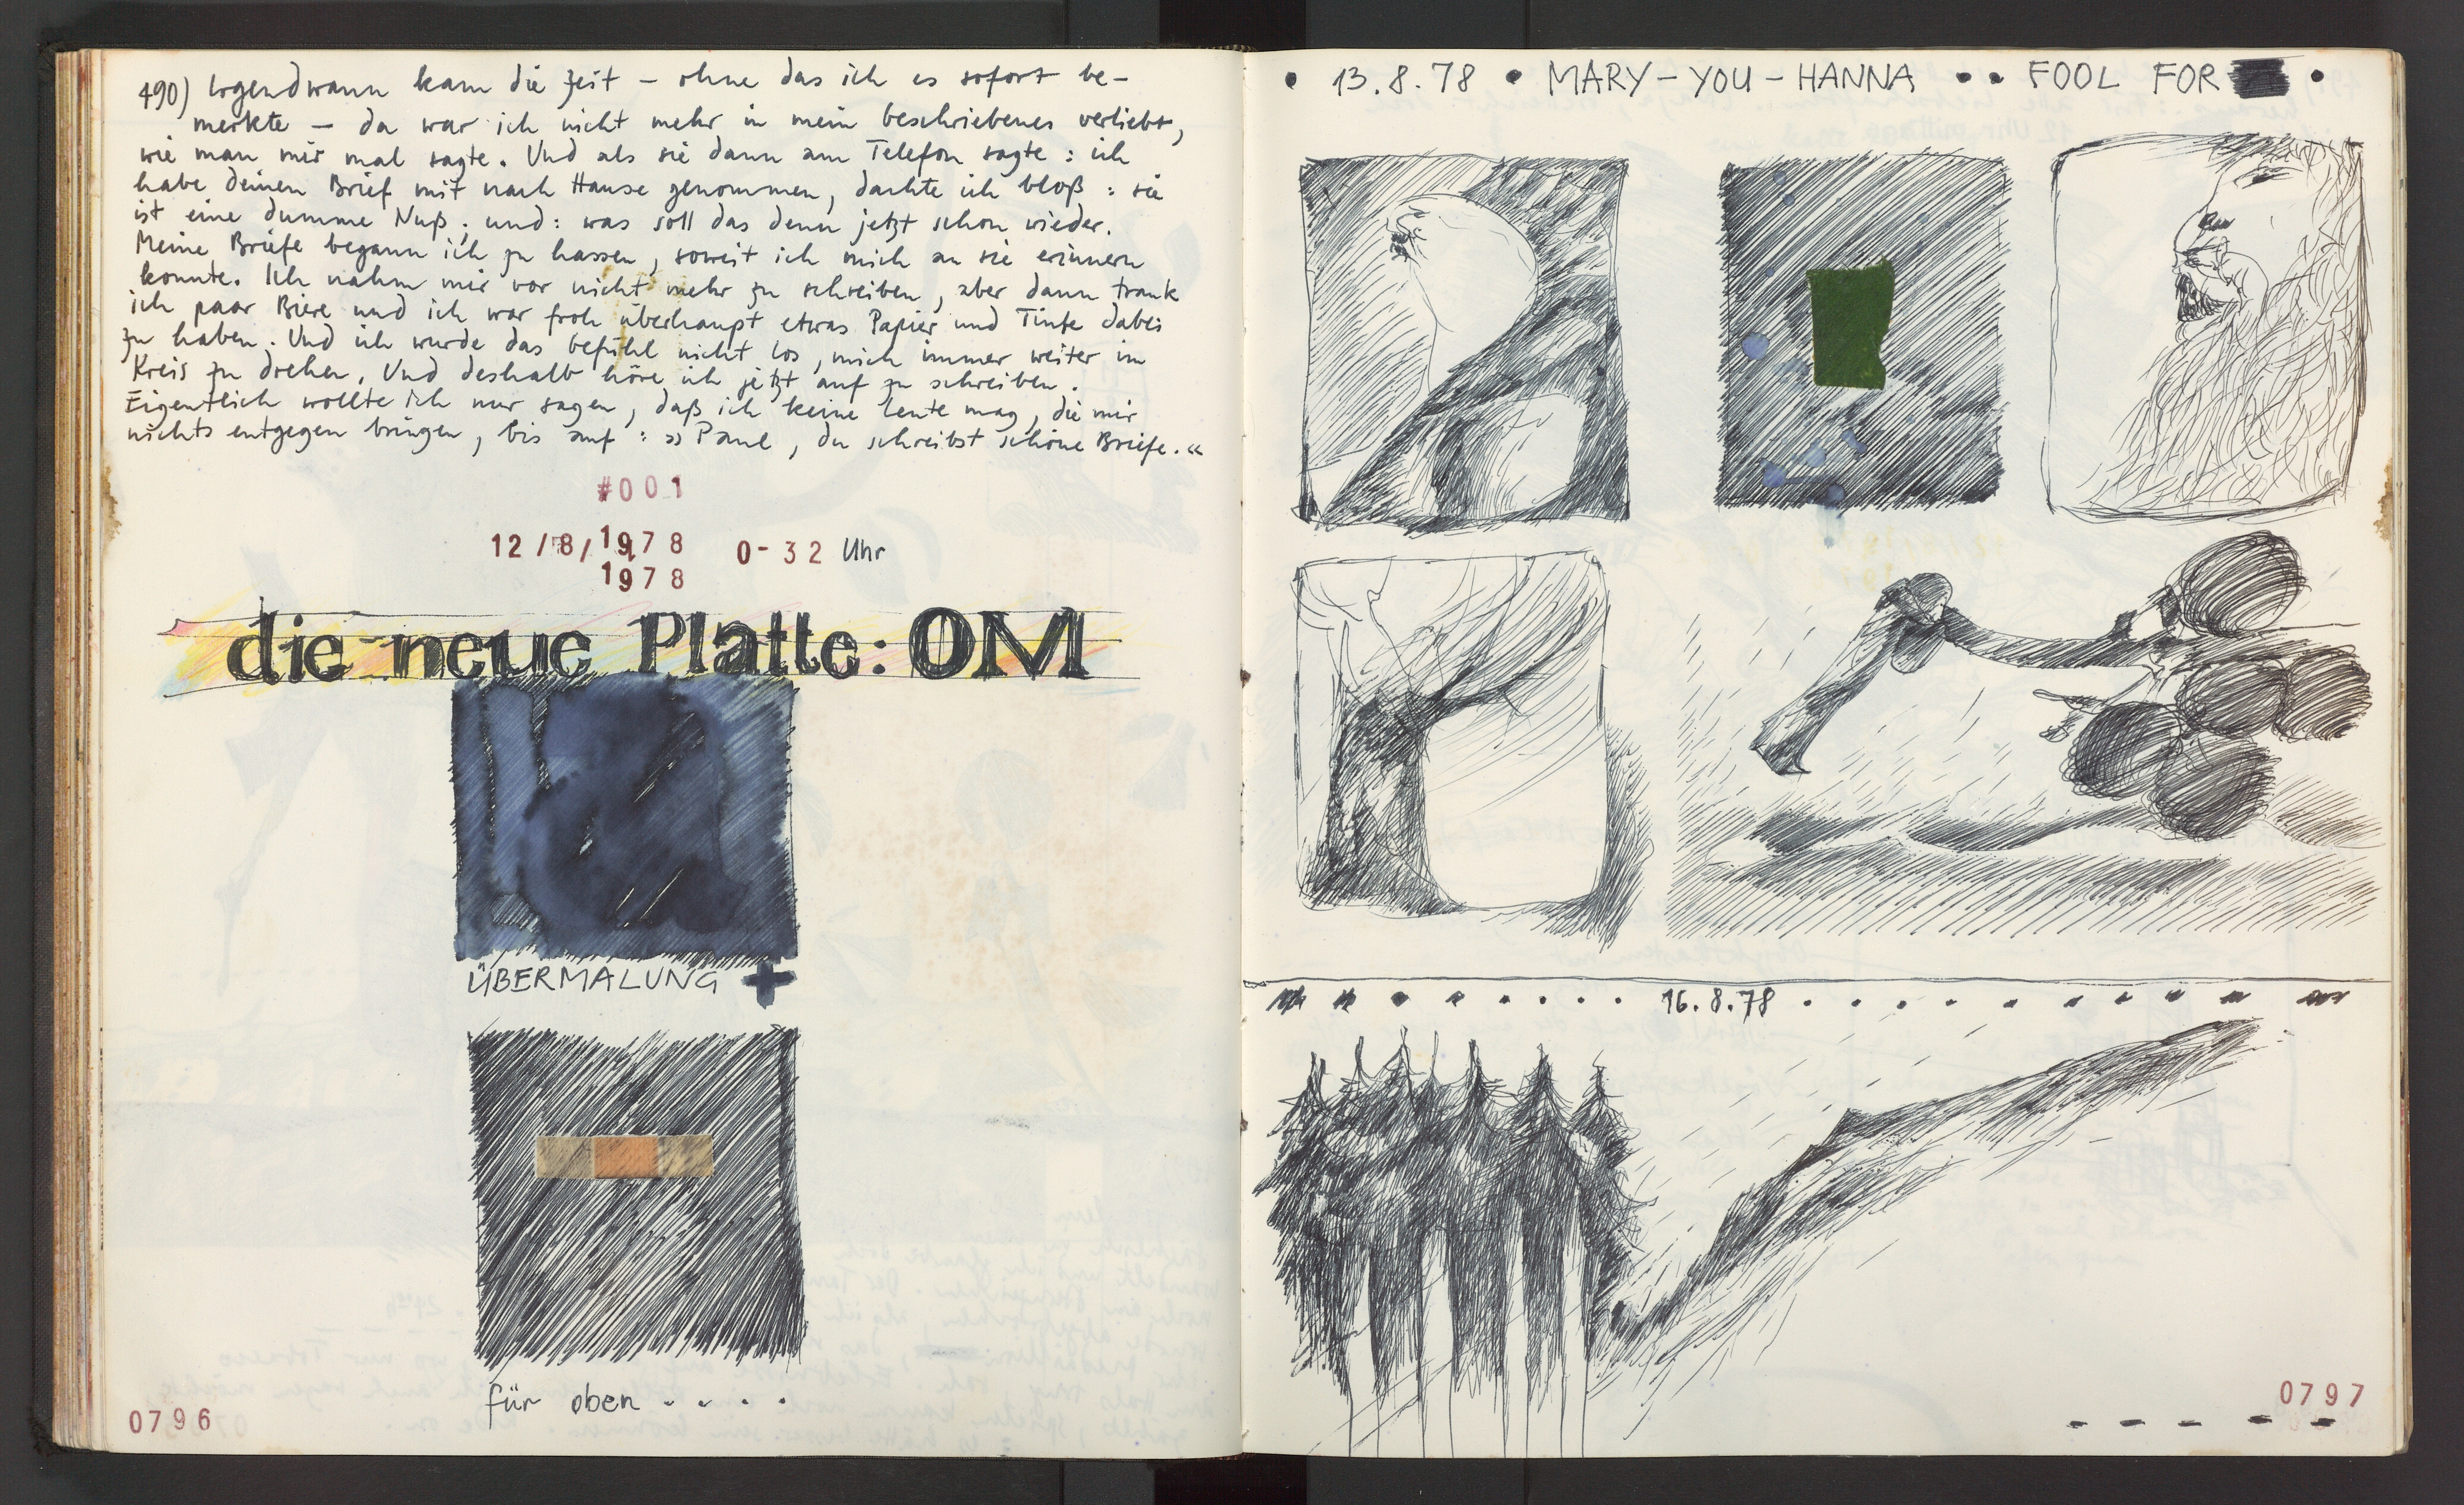 490) Irgendwann kam die Zeit – ohne das ich es sofort be-
merkte – da war ich nicht mehr in mein beschriebenes verliebt,
wie man mir mal sagte. Und als sie dann am Telefon sagte: ich
habe deinen Brief mit nach Hause genommen, dachte ich bloß: sie
ist eine dumme Nuß; und: was soll das denn jetzt schon wieder.
Meine Briefe begann ich zu hassen, soweit ich mich an sie erinnern
konnte. Ich nahm mir vor nicht mehr zu schreiben, aber dann trank
ich paar Biere und ich war froh überhaupt etwas Papier und Tinte dabei
zu haben. Und ich wurde das Gefühl nicht los, mich immer weiter im
Kreis zu drehen. Und deshalb höre ich jetzt auf zu schreiben.
Eigentlich wollte ich nur sagen, daß ich keine Leute mag, die mir
nichts entgegen bringen, bis auf: »Paul, du schreibst schöne Briefe.«
#001
12/8/1978 0-32 Uhr
1978
die neue Platte: OM
ÜBERMALUNG +
für oben . . . .
0796
• 13.8.78 • MARY-YOU-HANNA •• FOOL FOR •
16.8.78
0797